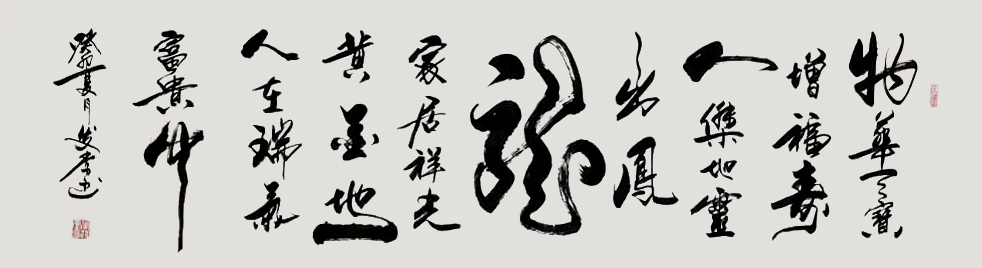 物華天寶
增福壽
人傑地靈
出鳳
龍
家居祥光
黃金地
人在瑞氣
富貴中
癸卯夏月